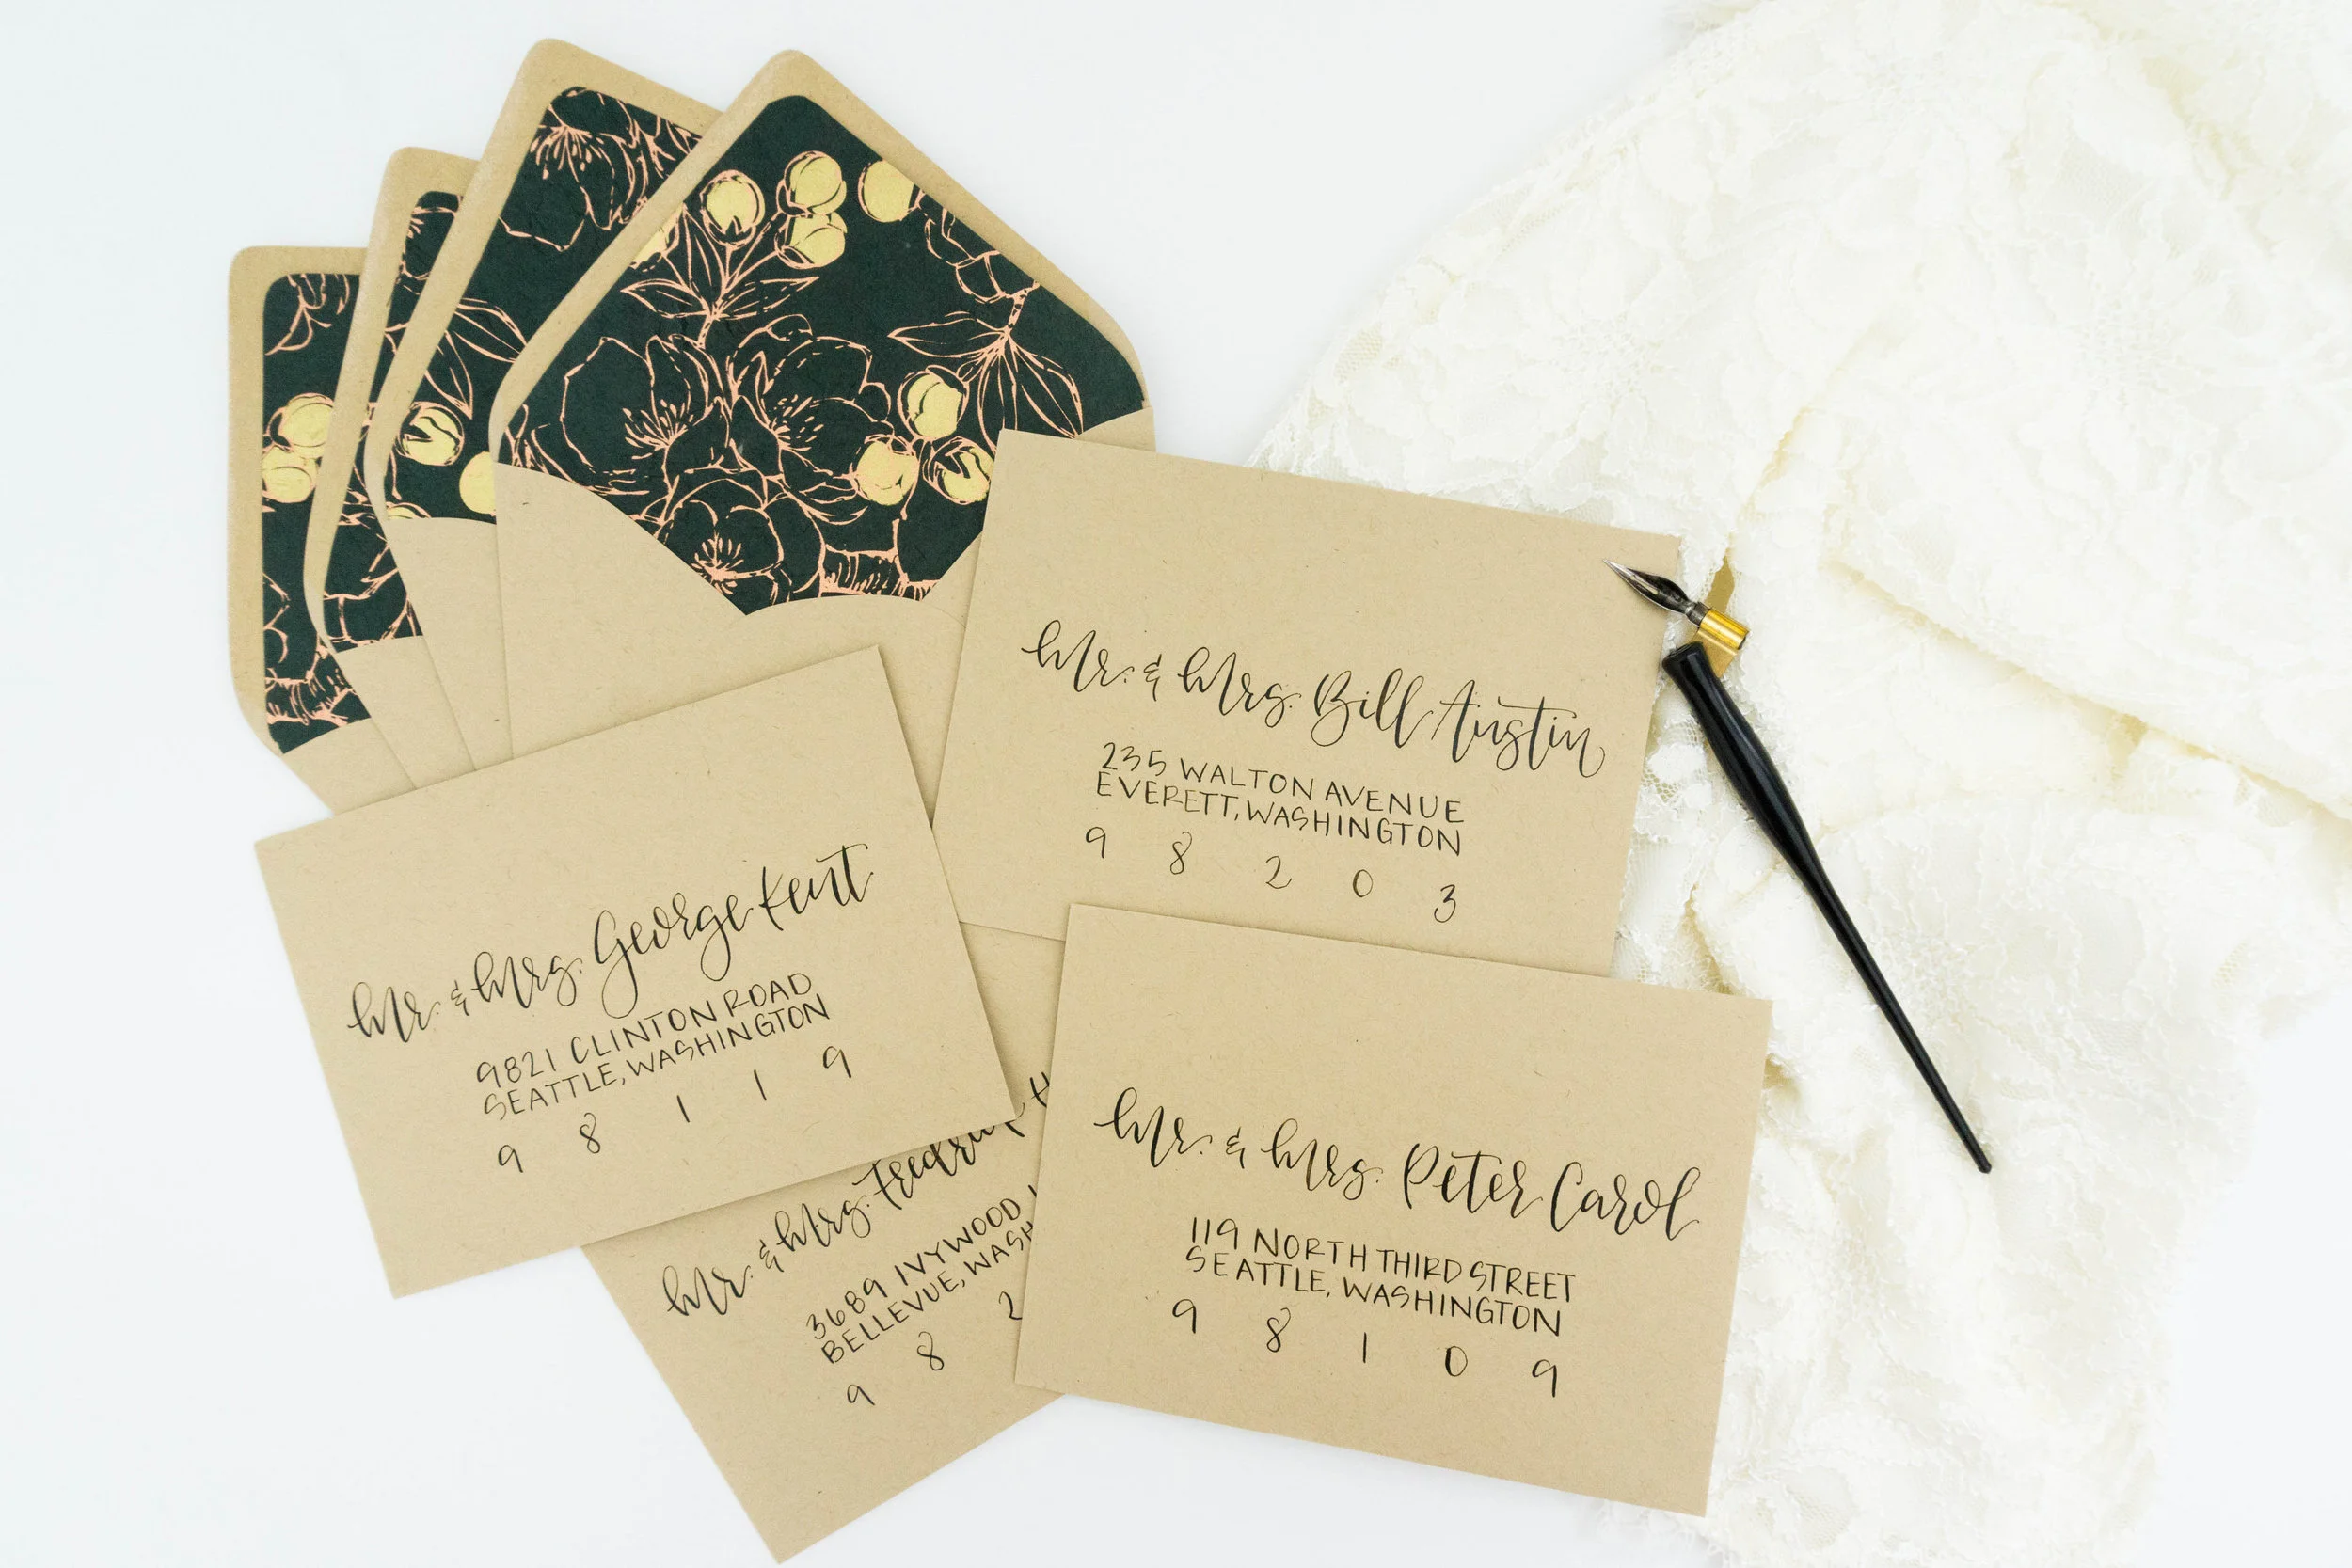 Mr. & Mrs. Bill Austin
235 WALTON AVENUE
EVERETT, WASHINGTON
9 8 2 0 3
Mr. & Mrs. George Kent
9821 CLINTON ROAD
SEATTLE, WASHINGTON
9 8 1 1 9
Mr. & Mrs. Peter Carol
119 NORTH THIRD STREET
SEATTLE, WASHINGTON
9 8 1 0 9
Mr. & Mrs.
3689 IVYWOOD
BELLEVUE, WASH
9 8 2